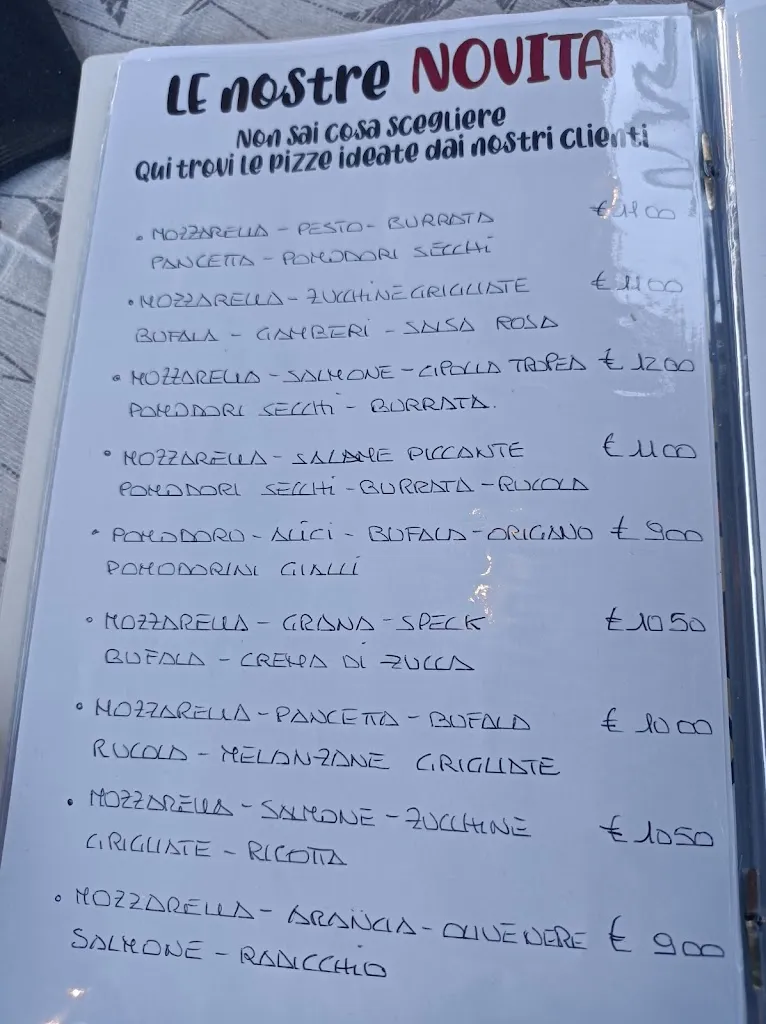 LE nostre NOVITA
Non sai cosa scegliere
Qui trovi le pizze ideate dai nostri clienti
• MOZZARELLA - PESTO - BURRATA € 1100
PANCETTA - POMODORI SECCHI
• MOZZARELLA - ZUCCHINE GRIGLIATE € 1100
BUFALA - GAMBERI - SALSA ROSA
• MOZZARELLA - SALMONE - CIPOLLA TROPEA € 1200
POMODORI SECCHI - BURRATA.
• MOZZARELLA - SALAME PICCANTE € 1100
POMODORI SECCHI - BURRATA - RUCOLA
• POMODORO - ALICI - BUFALA - ORIGANO € 900
POMODORINI GIALLI
• MOZZARELLA - GRANA - SPECK € 1050
BUFALA - CREMA DI ZUCCA
• MOZZARELLA - PANCETTA - BUFALA € 1000
RUCOLA - MELANZANE GRIGLIATE
• MOZZARELLA - SALMONE - ZUCCHINE € 1050
GRIGLIATE - RICOTTA
• MOZZARELLA - ARANCIA - OLIVE NERE € 900
SALMONE - RADICCHIO